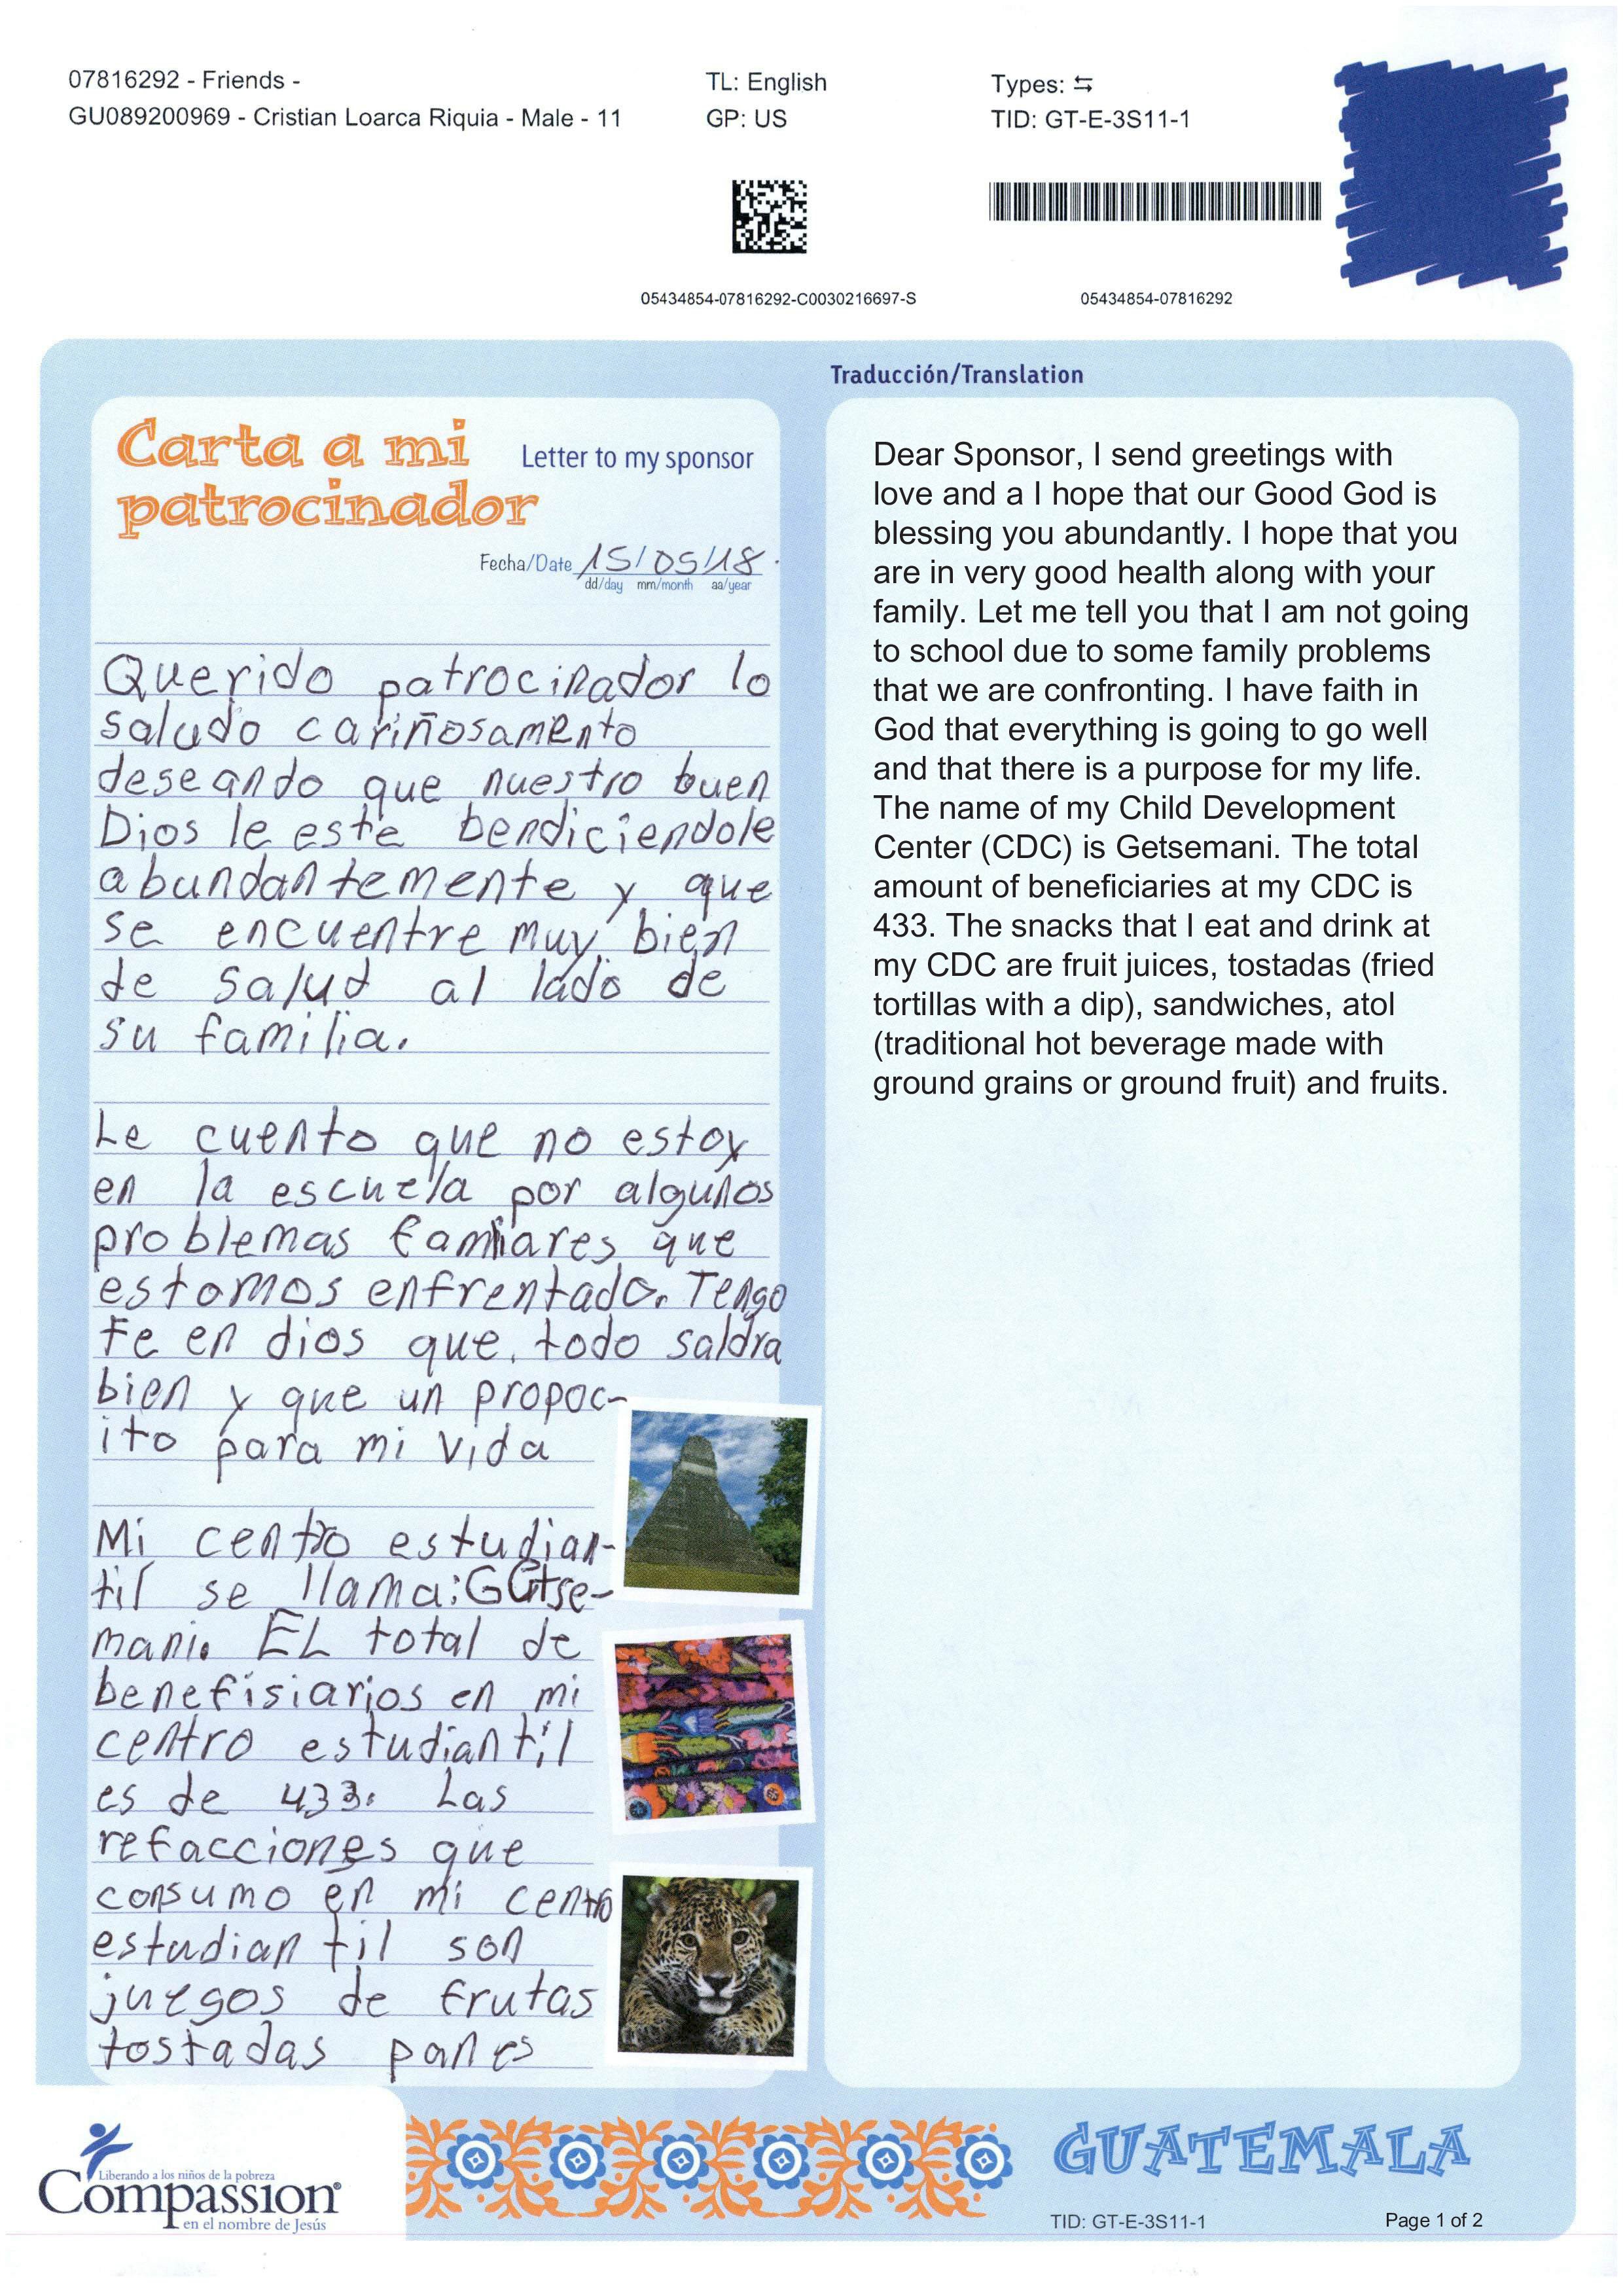 07816292 - Friends -
GU089200969 - Cristian Loarca Riquia - Male - 11
TL: English
GP: US
Types: ⇆
TID: GT-E-3S11-1
05434854-07816292-C0030216697-S
05434854-07816292
Carta a mi
patrocinador
Letter to my sponsor
Fecha/Date 15/05/18.
dd/day mm/month aa/year
Querido patrocinador lo
saludo cariñosamento
deseando que nuestro buen
Dios le este bendiciendole
abundantemente y que
se encuentre muy bien
de salud al lado de
su familia.
Le cuento que no estoy
en la escuela por algunos
problemas famliares que
estamos enfrentado. Tengo
Fe en dios que. todo saldra
bien y que un propoc-
ito para mi vida
Mi centro estudian-
til se llama: Getse-
mani. EL total de
benefisiarios en mi
centro estudiantil
es de 433. Las
refacciones que
consumo en mi centro
estudiantil son
juegos de frutas
tostadas panes
Traducción/Translation
Dear Sponsor, I send greetings with
love and a I hope that our Good God is
blessing you abundantly. I hope that you
are in very good health along with your
family. Let me tell you that I am not going
to school due to some family problems
that we are confronting. I have faith in
God that everything is going to go well
and that there is a purpose for my life.
The name of my Child Development
Center (CDC) is Getsemani. The total
amount of beneficiaries at my CDC is
433. The snacks that I eat and drink at
my CDC are fruit juices, tostadas (fried
tortillas with a dip), sandwiches, atol
(traditional hot beverage made with
ground grains or ground fruit) and fruits.
Liberando a los niños de la pobreza
Compassion®
en el nombre de Jesús
GUATEMALA
TID: GT-E-3S11-1
Page 1 of 2